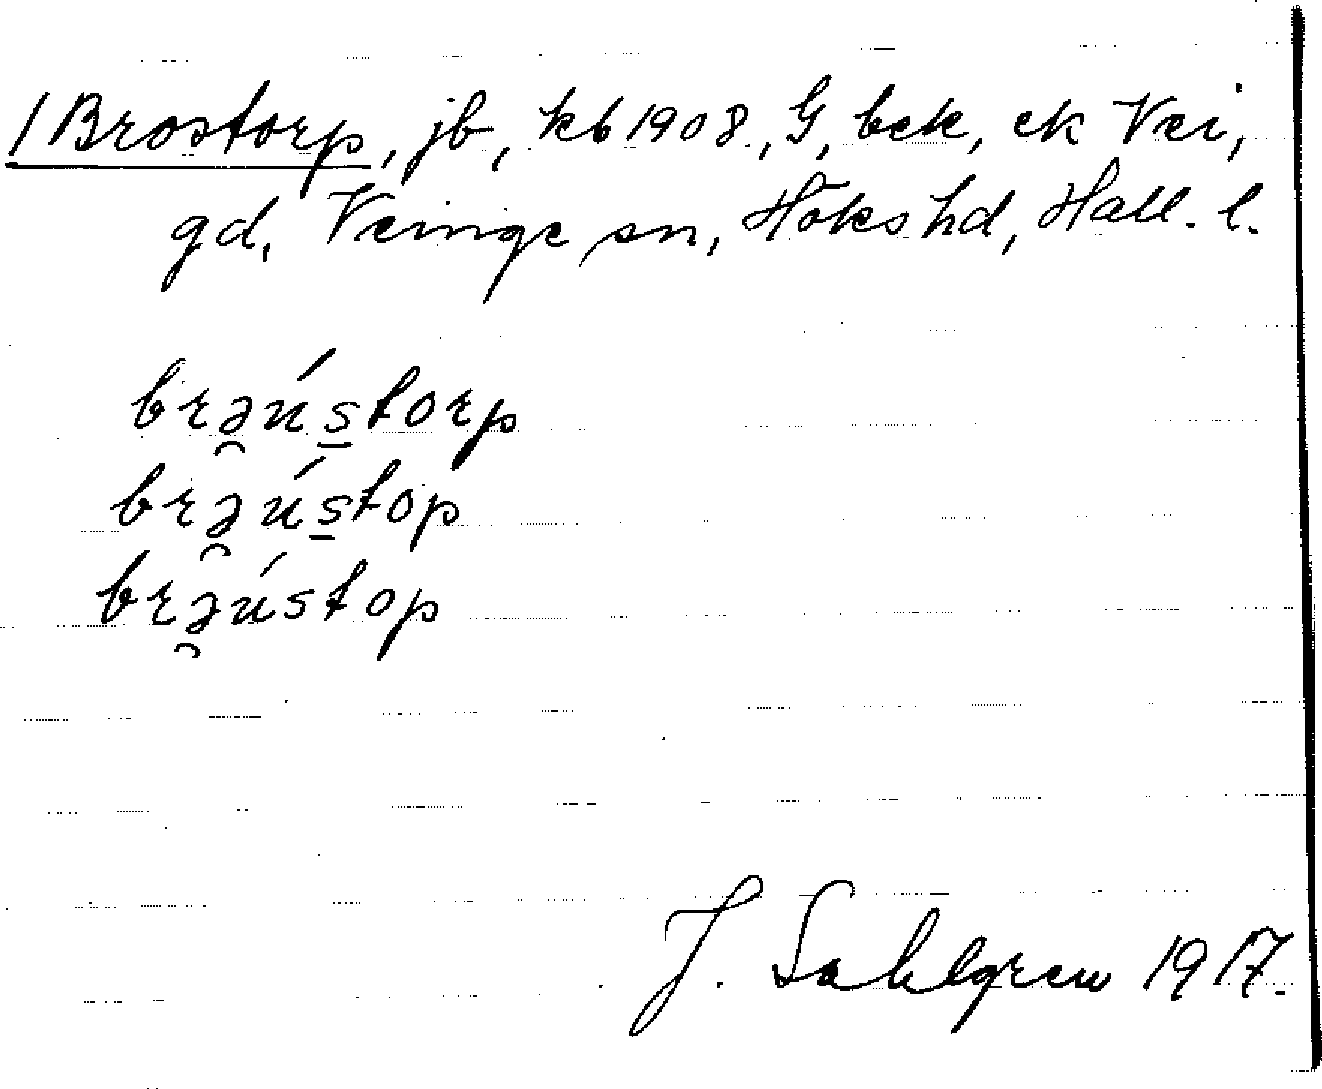 /Brostorp, jb, kb 1908, G, bek, ek Vei,
gd, Veinge sn, Höks hd, Hall. l.
brə̯ús̲torp
brə̯ús̲top
brə̯ústop
J. Sahlgren 1917.